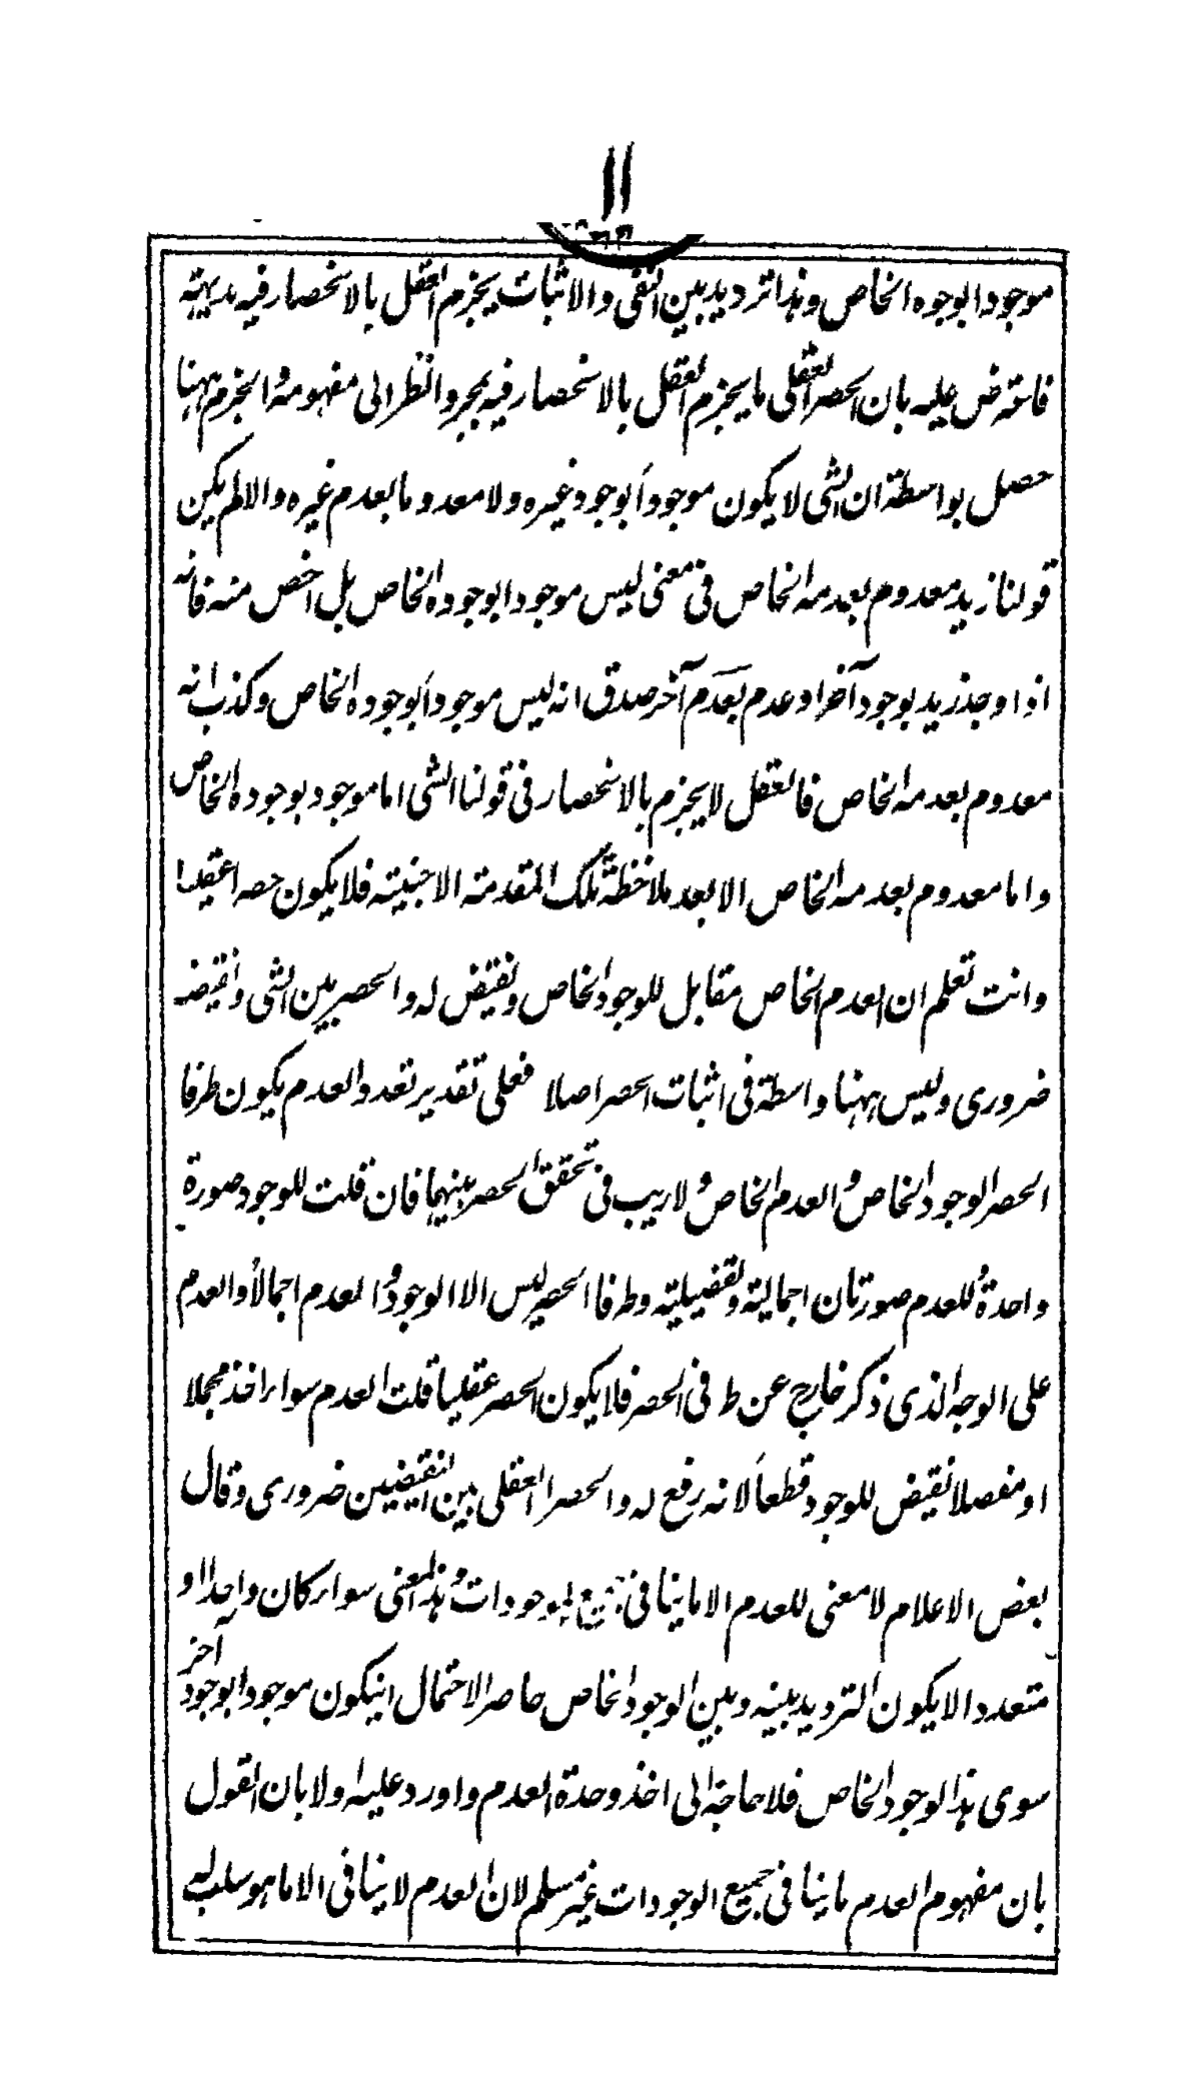 ١١
موجودا بوجوده الخاص وهذا ترديد بين النفى والاثبات يجزم العقل بالانحصار فيه بديهة
فاعترض عليه بان الحصر العقلى ما يجزم العقل بالانحصار فيه بمجرد النظر الى مفهومه والجزم ههنا
حصل بواسطة ان الشى لا يكون موجوداً بوجود غيره ولا معدوما بعدم غيره والا لم يكن
قولنا زيد معدوم بعدمه الخاص فى معنى ليس موجودا بوجوده الخاص بل اخص منه فانه
اذا وجد زيد بوجود آخر او عدم بعدم آخر صدق انه ليس موجوداً بوجوده الخاص وكذب انه
معدوم بعدمه الخاص فالعقل لا يجزم بالانحصار فى قولنا الشى اما موجود بوجوده الخاص
واما معدوم بعدمه الخاص الا بعد ملاحظة تلك المقدمة الاجنبية فلا يكون حصرا عقليا
وانت تعلم ان العدم الخاص مقابل للوجود الخاص ونقيض له والحصر بين الشى ونقيضه
ضرورى وليس ههنا واسطة فى اثبات الحصر اصلا فعلى تقدير تعدد العدم يكون طرفا
الحصر الوجود الخاص والعدم الخاص ولا ريب فى تحقق الحصر بينهما فان قلت للوجود صورة
واحدة وللعدم صورتان اجمالية وتفصيلية وطرفا الحصر ليس الا الوجود والعدم اجمالاً والعدم
على الوجه الذى ذكر خارج عن ط فى الحصر فلا يكون الحصر عقليا قلت العدم سواء اخذ مجملا
او مفصلا نقيض للوجود قطعاً لانه رفع له والحصر العقلى بين النقيضين ضرورى وقال
بعض الاعلام لا معنى للعدم الا ما ينافى جميع الوجودات وهذا المعنى سواء كان واحدا او
متعددا لا يكون الترديد بينه وبين الوجود الخاص حاصرا لاحتمال ان يكون موجودا بوجود آخر
سوى هذا الوجود الخاص فلا حاجة الى اخذ وحدة العدم واورد عليه اولا بان القول
بان مفهوم العدم ما ينافى جميع الوجودات غير مسلم لان العدم لا ينافى الا ما هو سلب له